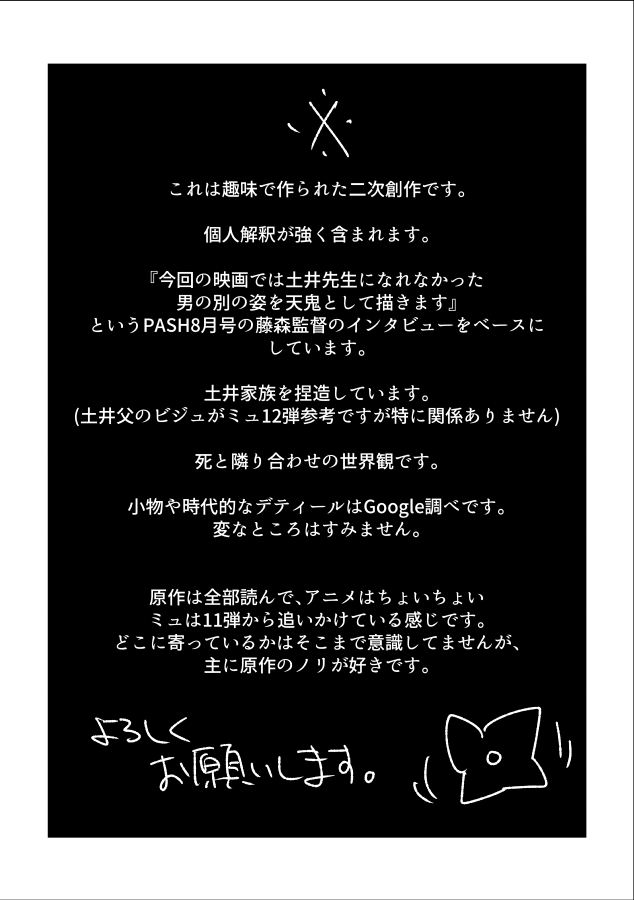 ※
これは趣味で作られた二次創作です。
個人解釈が強く含まれます。
『今回の映画では土井先生になれなかった
男の別の姿を天鬼として描きます』
というPASH8月号の藤森監督のインタビューをベースに
しています。
土井家族を捏造しています。
(土井父のビジュがミュ12弾参考ですが特に関係ありません)
死と隣り合わせの世界観です。
小物や時代的なデティールはGoogle調べです。
変なところはすみません。
原作は全部読んで、アニメはちょいちょい
ミュは11弾から追いかけている感じです。
どこに寄っているかはそこまで意識してませんが、
主に原作のノリが好きです。
よろしく
お願いします。